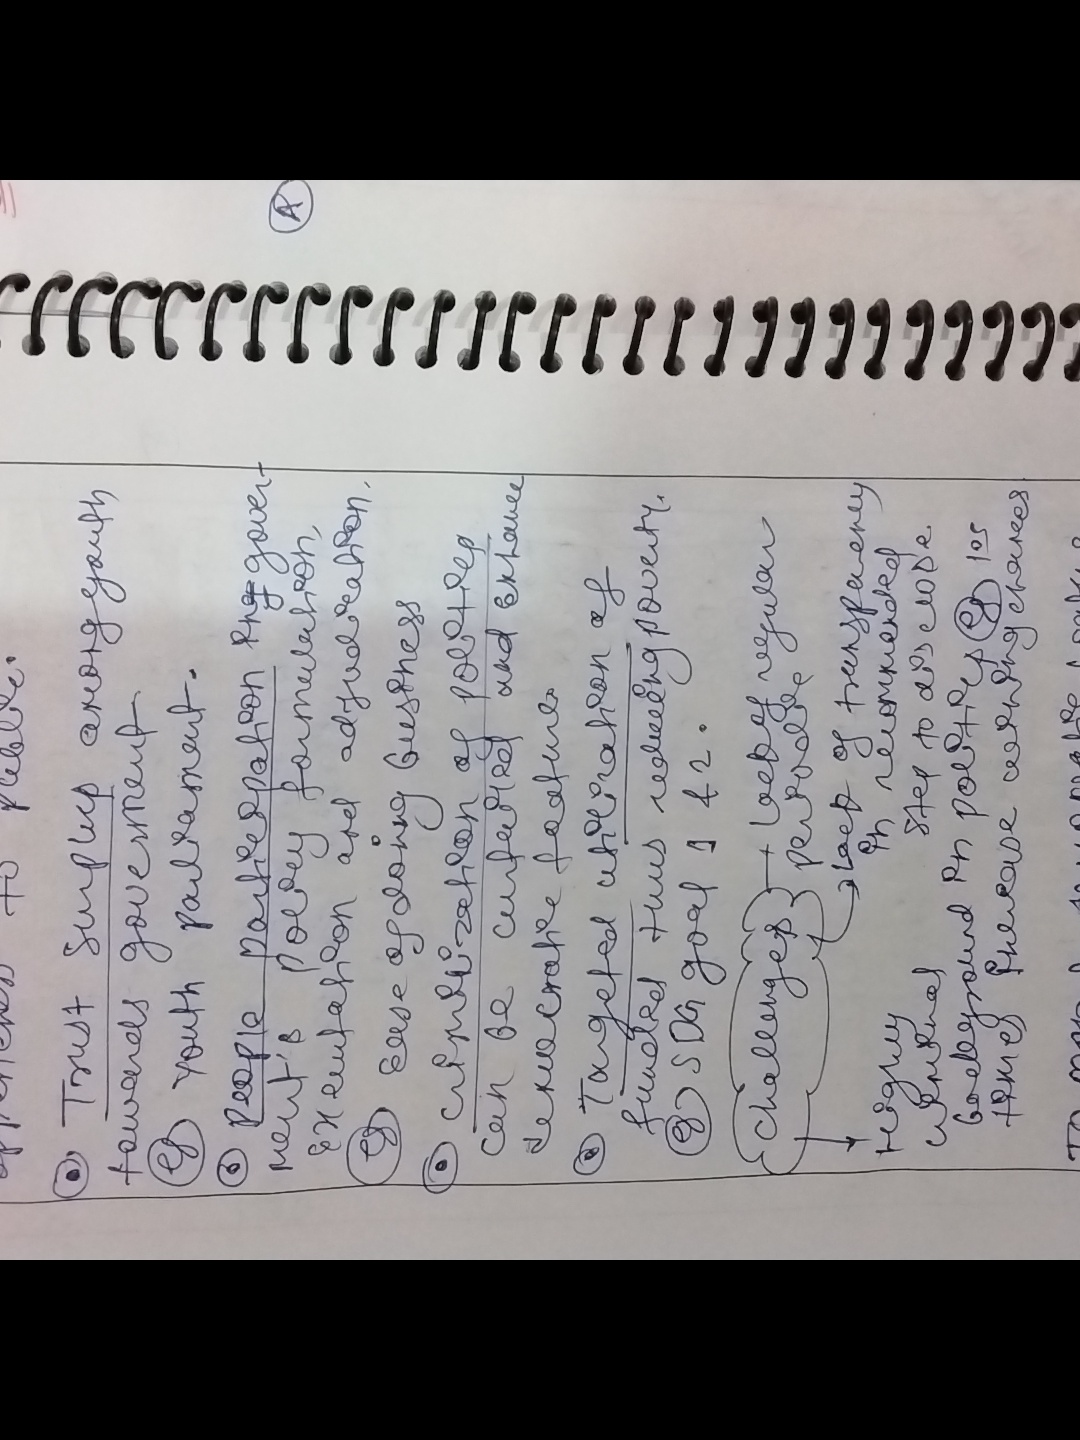 to public.
Trust surplus among youth
towards government
eg youth parliament.
people participation in gover-
ment's policy formulation,
Execution and adjudication.
eg Ease of doing business
criminalization of politics
can be curtailed and enhance
democratic feature.
Targeted utilization of
funded thus reducing poverty.
eg SDG goal 1 & 2.
Challenges → Lack of regular
periodic
→ Lack of transparency
in recommended
step to disclose
Highly
criminal
background in politics eg 10s
times increase winning chances
A